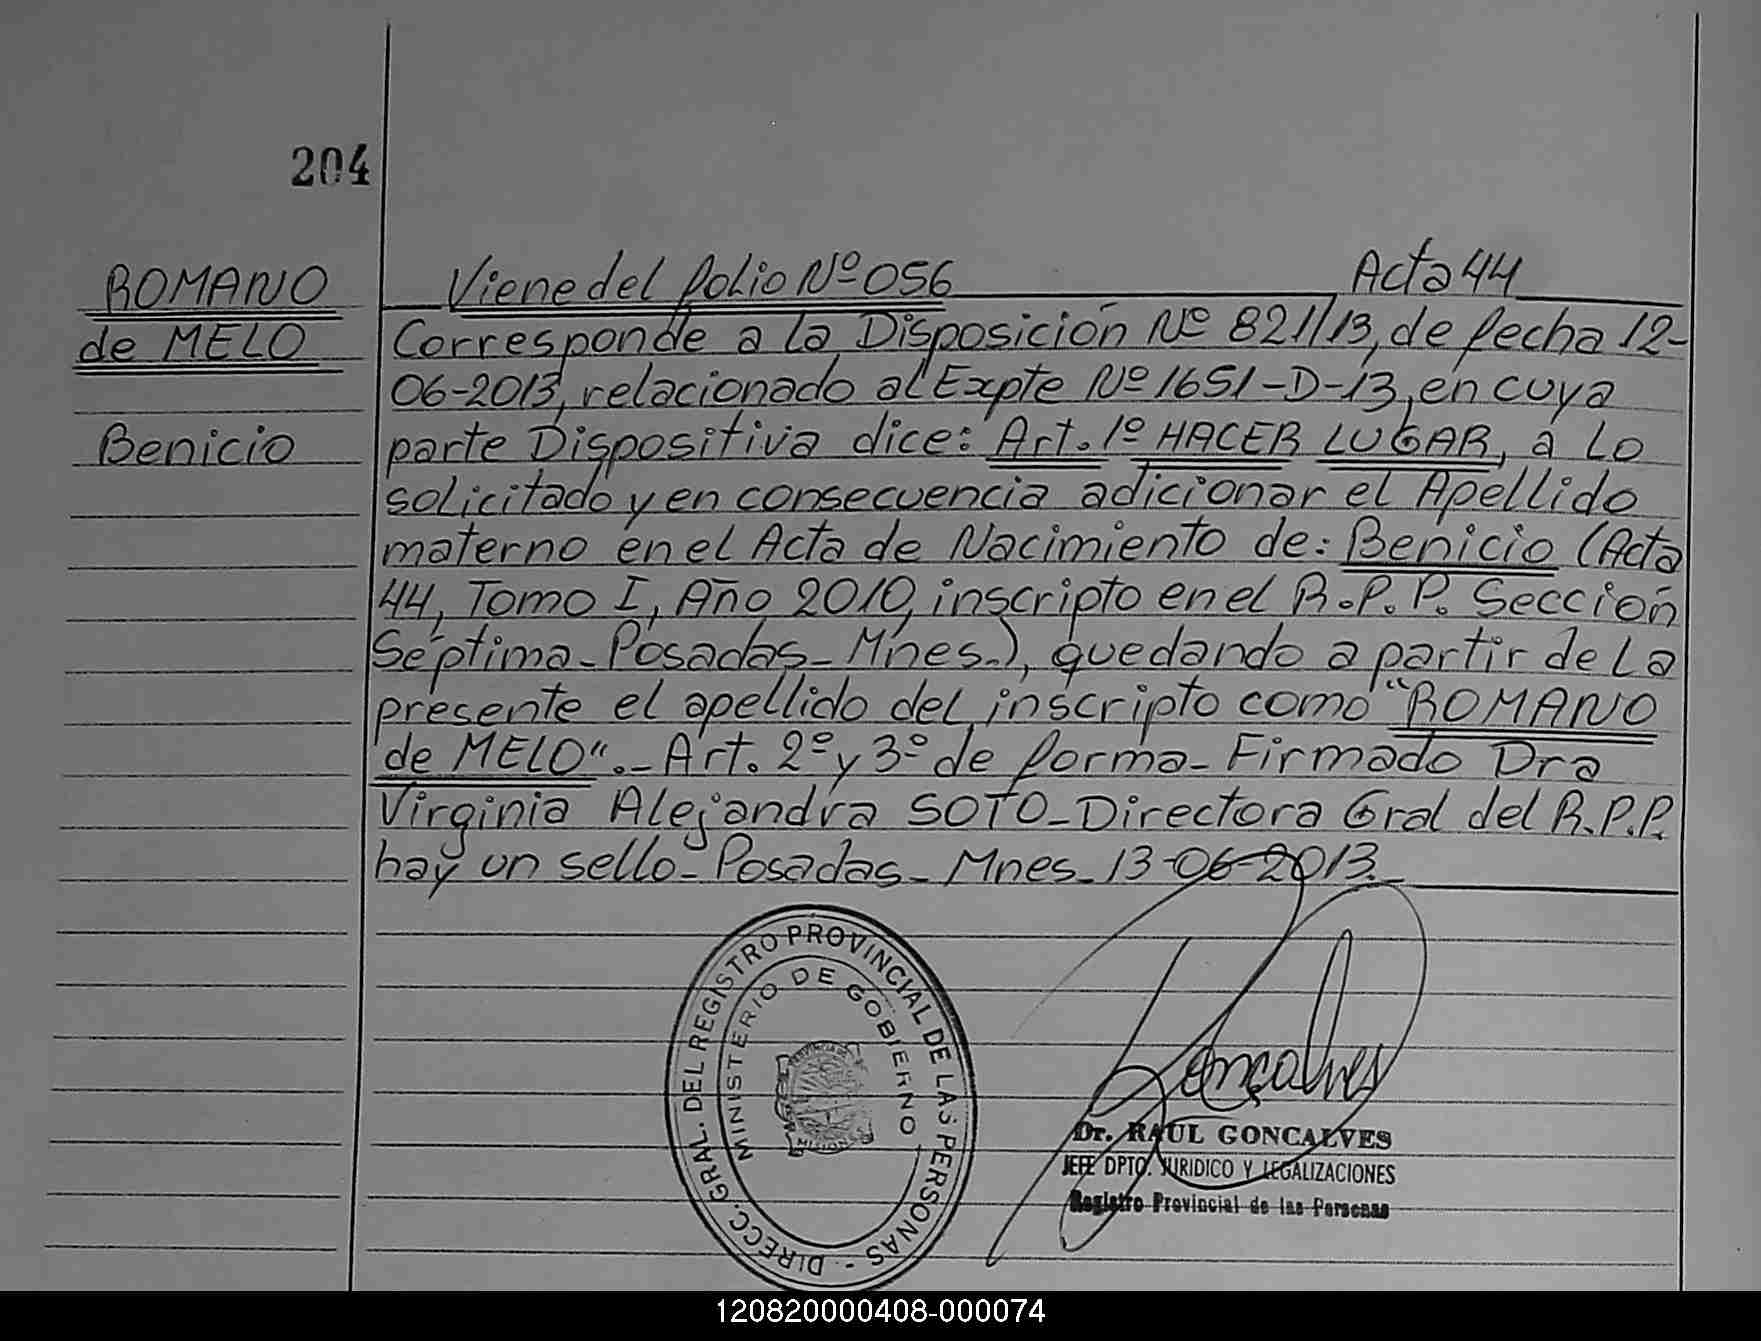 204
ROMANO
de MELO
Benicio
Viene del folio Nº 056 Acta 44
Corresponde a la Disposición Nº 821/13, de fecha 12-
06-2013, relacionado al Expte Nº 1651-D-13, en cuya
parte Dispositiva dice: Art. 1º HACER LUGAR, a lo
solicitado y en consecuencia adicionar el Apellido
materno en el Acta de Nacimiento de: Benicio (Acta
44, Tomo I, Año 2010, inscripto en el R.P.P. Sección
Séptima - Posadas - Mnes.), quedando a partir de la
presente el apellido del inscripto como "ROMANO
de MELO".- Art. 2º y 3º de forma - Firmado Dra
Virginia Alejandra SOTO - Directora Gral del R.P.P.
hay un sello - Posadas - Mnes - 13-06-2013.-
DIRECC. GRAL. DEL REGISTRO PROVINCIAL DE LAS PERSONAS -
MINISTERIO DE GOBIERNO
PROVINCIA DE
MISIONES
Goncalves
Dr. RAUL GONCALVES
JEFE DPTO. JURIDICO Y LEGALIZACIONES
Registro Provincial de las Personas
120820000408-000074